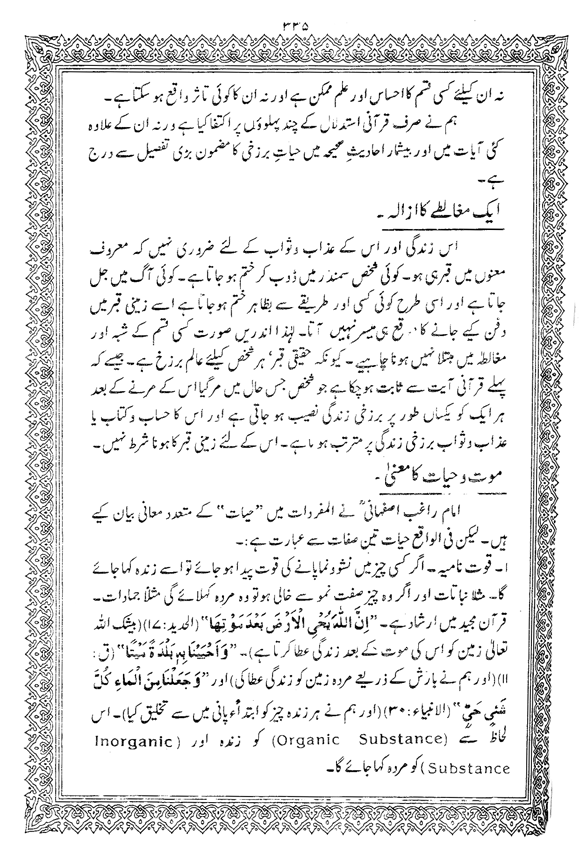 ۳۳۵
نہ ان کیلئے کسی قسم کا احساس اور علم ممکن ہے اور نہ ان کا کوئی تاثر واقع ہو سکتا ہے۔
ہم نے صرف قرآنی استدلال کے چند پہلوؤں پر اکتفا کیا ہے ورنہ ان کے علاوہ
کئی آیات میں اور بیشار احادیثِ صحیحہ میں حیاتِ برزخی کا مضمون بڑی تفصیل سے درج
ہے۔
ایک مغالطے کا ازالہ۔
اس زندگی اور اس کے عذاب و ثواب کے لئے ضروری نہیں کہ معروف
معنوں میں قبر ہی ہو۔ کوئی شخص سمندر میں ڈوب کر ختم ہو جاتا ہے۔ کوئی آگ میں جل
جاتا ہے اور اسی طرح کوئی کسی اور طریقے سے بظاہر ختم ہو جاتا ہے اسے زمینی قبر میں
دفن کیے جانے کا موقع ہی میسر نہیں آتا۔ لہٰذا اندریں صورت کسی قسم کے شبہ اور
مغالطہ میں مبتلا نہیں ہونا چاہیے۔ کیونکہ حقیقی قبر، ہر شخص کیلئے عالمِ برزخ ہے۔ جیسے کہ
پہلے قرآنی آیت سے ثابت ہو چکا ہے جو شخص جس حال میں مر گیا اس کے مرنے کے بعد
ہر ایک کو یکساں طور پر برزخی زندگی نصیب ہو جاتی ہے اور اس کا حساب و کتاب یا
عذاب و ثواب برزخی زندگی پر مترتب ہوتا ہے۔ اس کے لئے زمینی قبر کا ہونا شرط نہیں۔
موت و حیات کا معنیٰ۔
امام راغب اصفہانیؒ نے المفردات میں ”حیات“ کے متعدد معانی بیان کیے
ہیں۔ لیکن فی الواقع حیات تین صفات سے عبارت ہے:۔
۱۔ قوت نامیہ۔ اگر کسی چیز میں نشوونما پانے کی قوت پیدا ہو جائے تو اسے زندہ کہا جائے
گا۔ مثلاً نباتات اور اگر وہ چیز صفت نمو سے خالی ہو تو وہ مردہ کہلائے گی مثلاً جمادات۔
قرآن مجید میں ارشاد ہے۔ ”اِنَّ اللّٰہَ یُحْیِ الْاَرْضَ بَعْدَ مَوْتِھَا“ (الحدید:۱۷) (بیشک اللہ
تعالیٰ زمین کو اس کی موت کے بعد زندگی عطا کرتا ہے)۔ ”وَ اَحْیَیْنَا بِہٖ بَلْدَۃً مَّیْتًا“ (ق:
۱۱) (اور ہم نے بارش کے ذریعے مردہ زمین کو زندگی عطا کی) اور ”وَ جَعَلْنَا مِنَ الْمَاءِ کُلَّ
شَیْءٍ حَیٍّ“ (الانبیاء:۳۰) (اور ہم نے ہر زندہ چیز کو ابتداءً پانی میں سے تخلیق کیا)۔ اس
لحاظ سے (Organic Substance) کو زندہ اور (Inorganic
Substance) کو مردہ کہا جائے گا۔